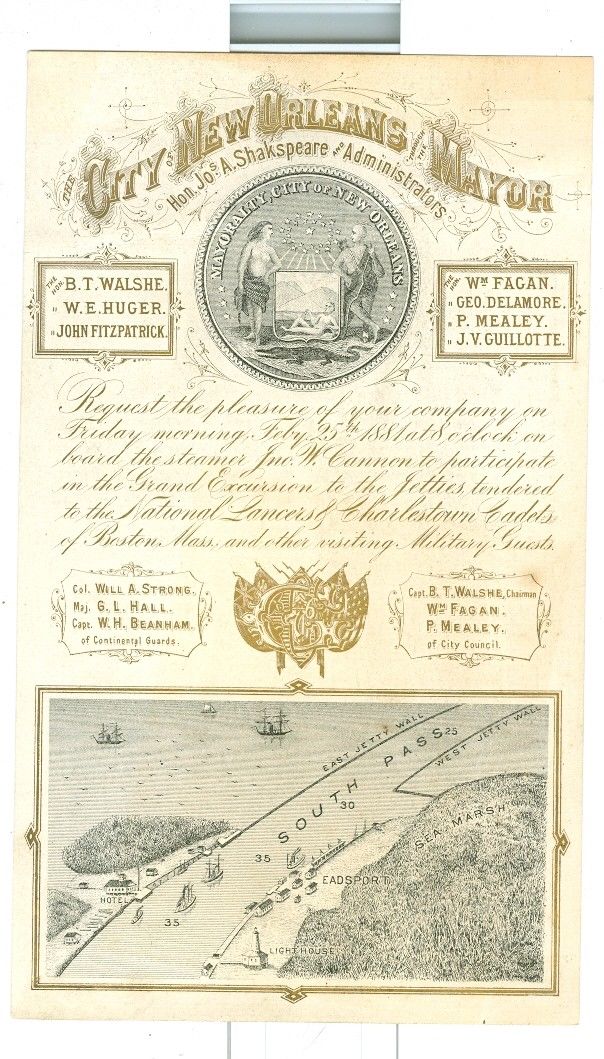 THE CITY OF NEW ORLEANS THROUGH THE MAYOR
Hon. Jos. A. Shakspeare AND Administrators
MAYORALTY, CITY OF NEW ORLEANS
THE HON. B. T. WALSHE.
" W. E. HUGER.
" JOHN FITZPATRICK.
THE HON. WM FAGAN.
" GEO. DELAMORE.
" P. MEALEY.
" J. V. GUILLOTTE.
Request the pleasure of your company on
Friday morning, Feby. 25th 1881 at 8 o'clock on
board the steamer Jno. W. Cannon to participate
in the Grand Excursion to the Jetties, tendered
to the National Lancers & Charlestown Cadets
of Boston Mass. and other visiting Military Guests.
Col. WILL A. STRONG.
Maj. G. L. HALL.
Capt. W. H. BEANHAM.
of Continental Guards.
Capt. B. T. WALSHE, Chairman
WM FAGAN.
P. MEALEY.
of City Council.
EAST JETTY WALL
WEST JETTY WALL
SOUTH PASS
25
30
35
35
SEA MARSH
EADSPORT
HOTEL
LIGHTHOUSE